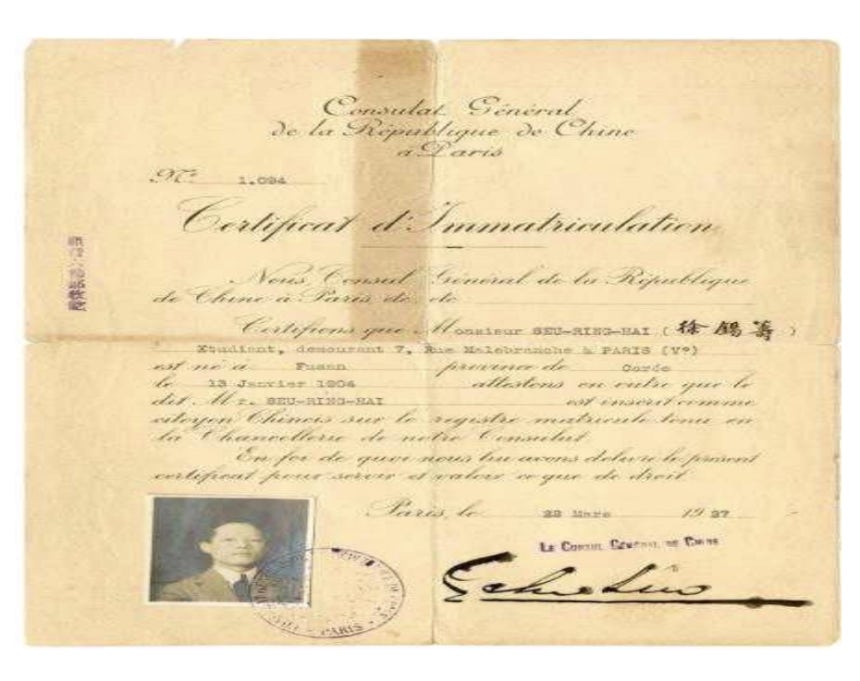 Consulat Général
de la République de Chine
à Paris
Nº 1.094
Certificat d'Immatriculation
Nous, Consul Général de la République
de Chine à Paris, etc. etc.
Certifions que Monsieur SEU-RING-HAI (徐錫籌)
Etudiant, demeurant 7, Rue Malebranche à PARIS (Vº)
est né à Fusan province de Corée
le 13 Janvier 1904 attestons en outre que le
dit Mr. SEU-RING-HAI est inscrit comme
citoyen Chinois sur le registre matricule tenu en
la Chancellerie de notre Consulat
En foi de quoi nous lui avons délivré le présent
certificat pour servir et valoir ce que de droit
Paris, le 22 Mars 1937
LE CONSUL GÉNÉRAL DE CHINE
PARIS